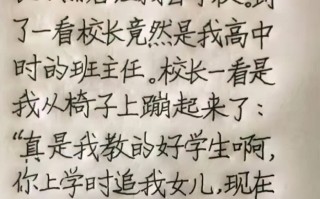 了一看校长竟然是我高中
时的班主任。校长一看是
我从椅子上蹦起来了：
“真是我教的好学生啊，
你上学时追我女儿，现在